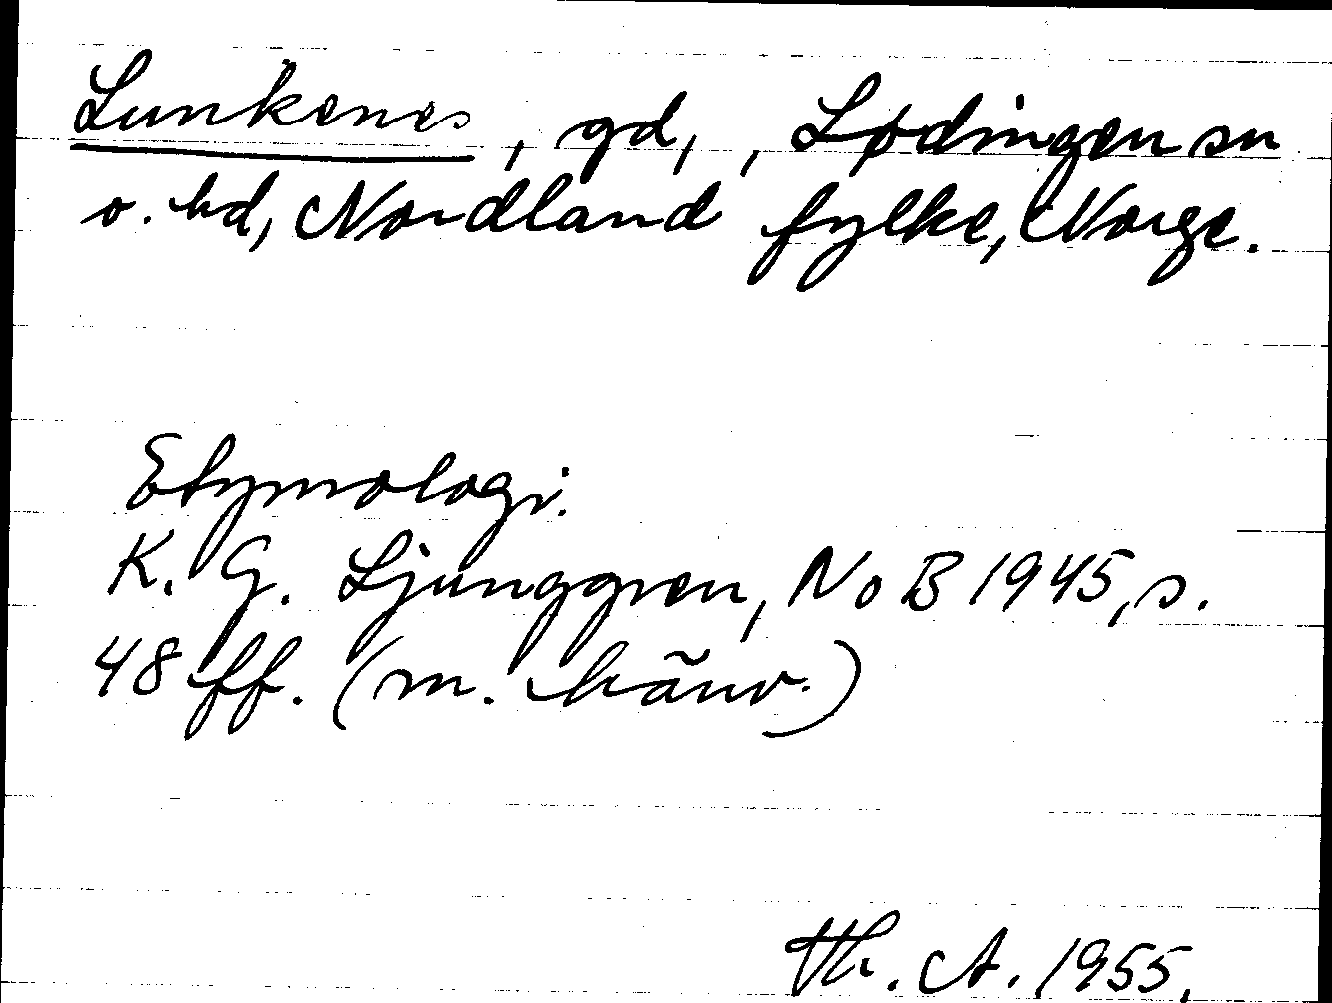 Lunkenes, gd, , Lødingen sn
o. hd, Nordland fylke, Norge.
Etymologi.
K. G. Ljunggren, NoB 1945, s.
48 ff. (m. hänv.)
Th. A. 1955.